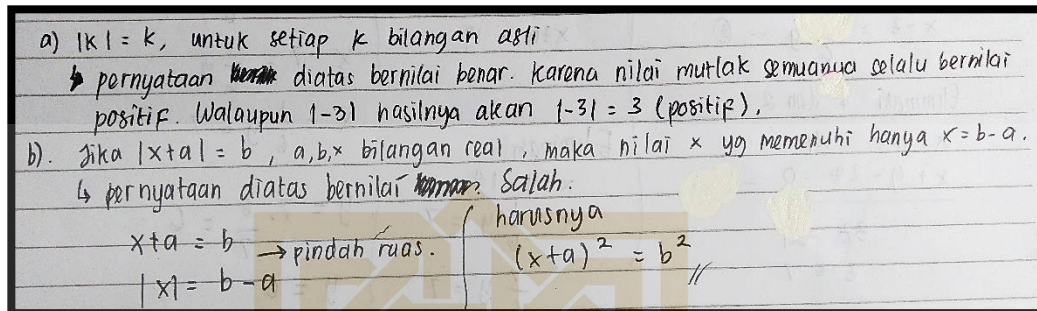 a) |k| = k, untuk setiap k bilangan asli
↳ pernyataan diatas bernilai benar. Karena nilai mutlak semuanya selalu bernilai
positif. Walaupun |-3| hasilnya akan |-3| = 3 (positif).
b). Jika |x+a| = b, a,b,x bilangan real, maka nilai x yg memenuhi hanya x = b - a.
↳ pernyataan diatas bernilai Salah.
x+a = b → pindah ruas.
|x| = b - a
harusnya
(x+a)² = b² //